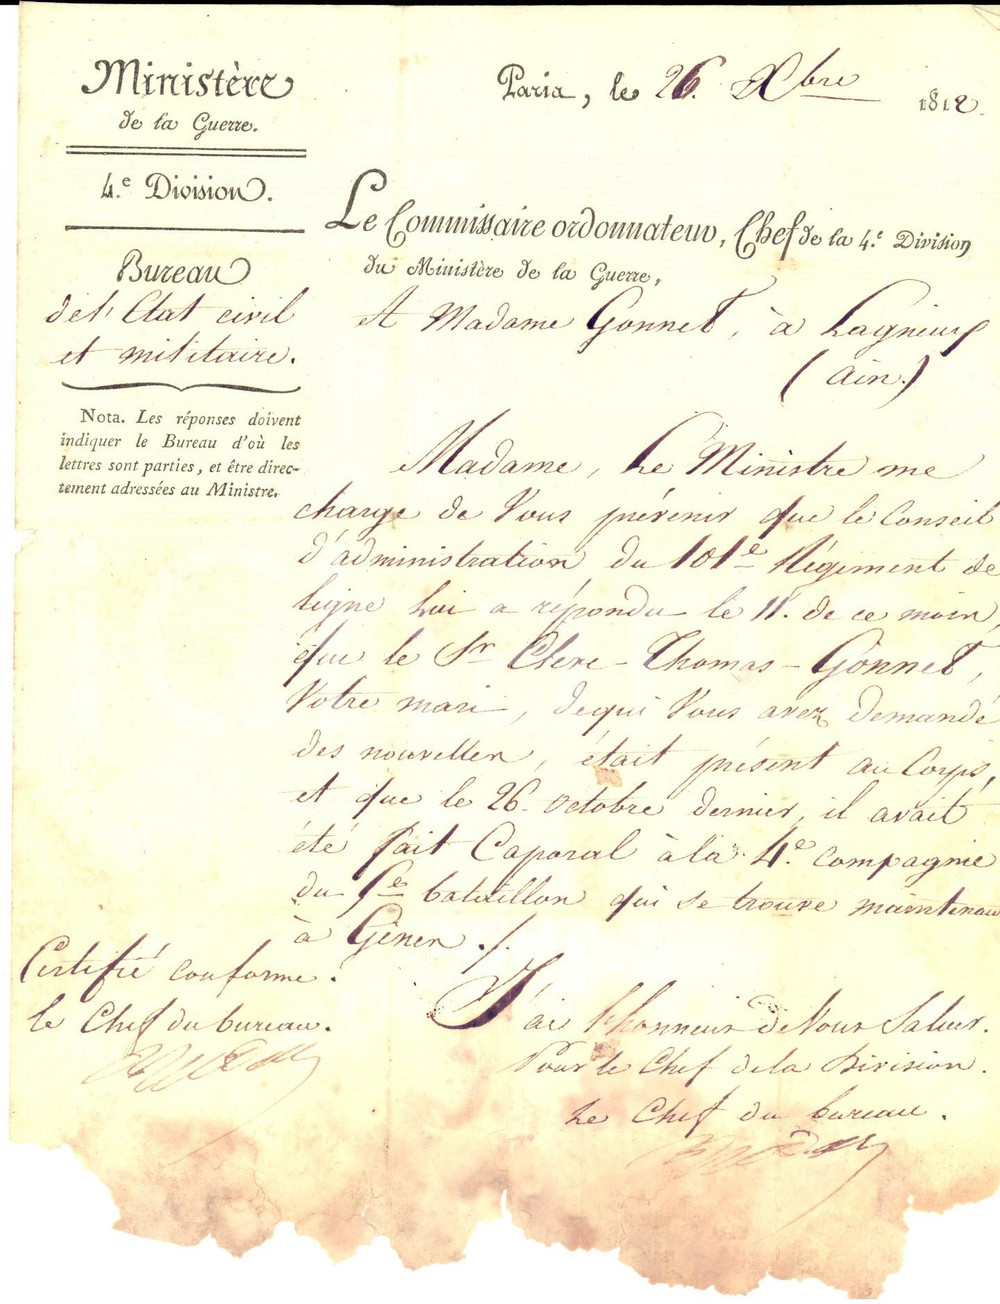 Ministère
de la Guerre.
4.e Division.
Bureau
de l'Etat civil
et militaire.
Nota. Les réponses doivent
indiquer le Bureau d'où les
lettres sont parties, et être direc-
tement adressées au Ministre.
Paris, le 26. Xbre 1812.
Le Commissaire ordonnateur, Chef de la 4.e Division
du Ministère de la Guerre,
A Madame Gonnet, à Lagnieux
(Ain.)
Madame, Le Ministre me
charge de Vous prévenir que le Conseil
d'administration du 101e Régiment de
ligne lui a répondu le 11. de ce mois,
que le Sr Clere-Thomas-Gonnet,
Votre mari, de qui Vous avez demandé
des nouvelles, était présent au Corps,
et que le 26 octobre dernier, il avait
été fait Caporal à la 4.e compagnie
du 1er bataillon qui se trouve maintenan
à Gênes ./.
J'ai l'honneur de Vous Saluer.
Pour le Chef de la Division.
Le Chef du bureau.
Certifié conforme.
le Chef du bureau.